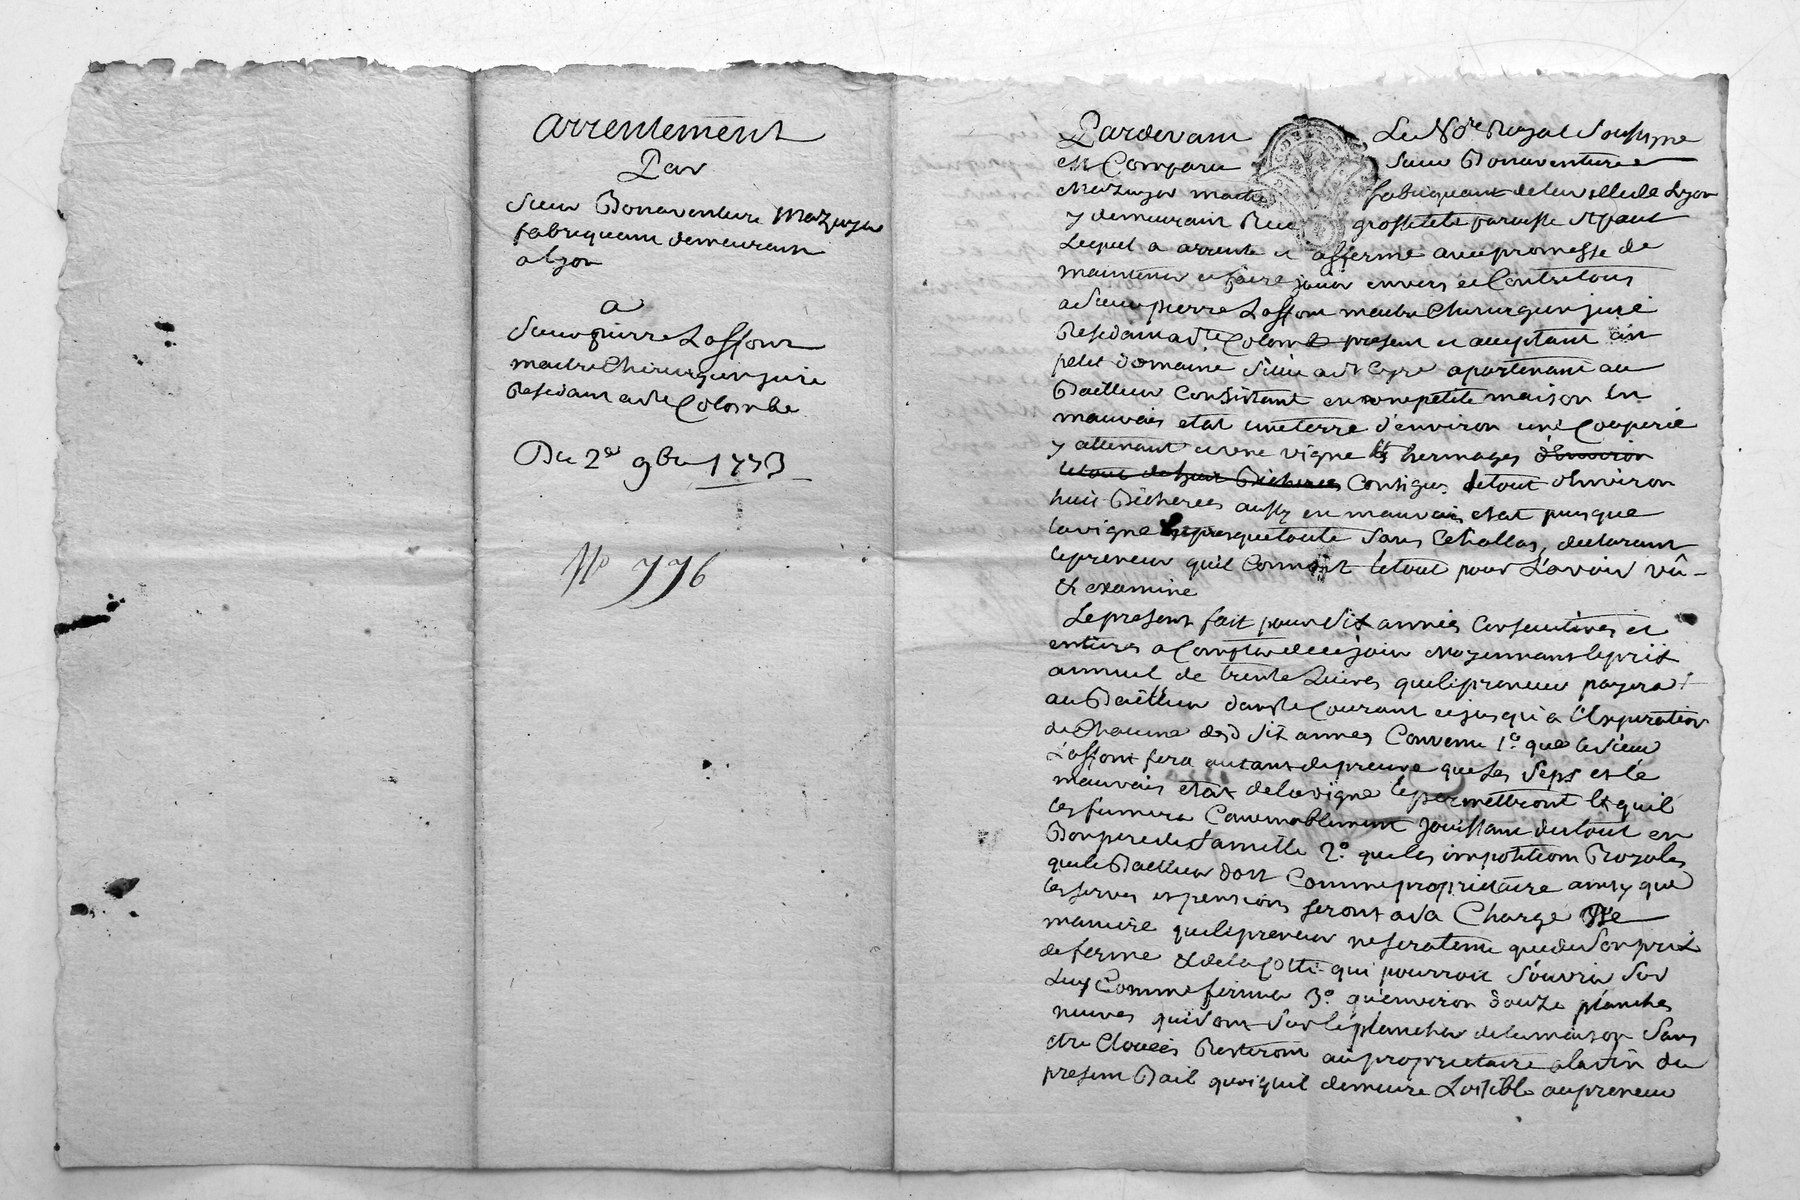 arrentement
Par
Sieur Bonaventure Mazuyer
fabriquant demeurant
a Lyon
a
Sieur pierre Laffont
maitre Chirurgien juré
Residant a Ste Colombe
Du 2e 9bre 1773
No 776
Pardevant Le No.re Royal Soussigne
est Comparu Sieur Bonaventure
Mazuyer maitre fabriquant de la ville de Lyon
y demeurant Rue grosse tete paroisse St paul
Lequel a arrente et afferme avec promesse de
maintenir et faire jouir envers et Contre tous
a Sieur pierre Laffont maitre Chirurgien juré
Residant a Ste Colombe present et acceptant un
petit domaine Situé a St Cyre apartenant au
Bailleur Consistant en une petite maison en
mauvais etat une terre d'environ une Couperée
y attenant et une vigne & hermages d'Environ
le tout de huit Bicherees Contigus le tout d'Environ
huit Bicherees aussy en mauvais etat puisque
la vigne est presque toute Sans Echallas, declarant
le preneur qu'il Connoit le tout pour L'avoir vû
& examine
Le present fait pour Six années Consecutives et
entieres a Compter de ce jour Moyennant le prix
annuel de trente Livres que le preneur payera
au Bailleur dans le Courant et jusqu'a l'Expiration
de Chacune des d Six annees Convenu 1o que le Sieur
Laffont fera autant de preuve que les Seps et le
mauvais etat de la vigne le permettront & quil
les fumera Convenablement jouissant du tout en
Bon pere de famille 2o que les impositions Royales
que le Bailleur doit Comme proprietaire ainsy que
les serves et pensions seront a sa Charge De
maniere que le preneur ne sera tenu que de Son prix
de ferme & de la Cotte qui pourroit S'ouvrir Sur
Luy Comme fermier 3o qu'environ douze planches
neuves qui Sont Sur le plancher de la maison Sans
etre Clouées Resteront au proprietaire a la fin du
present Bail quoiquil demeure Loisible au preneur